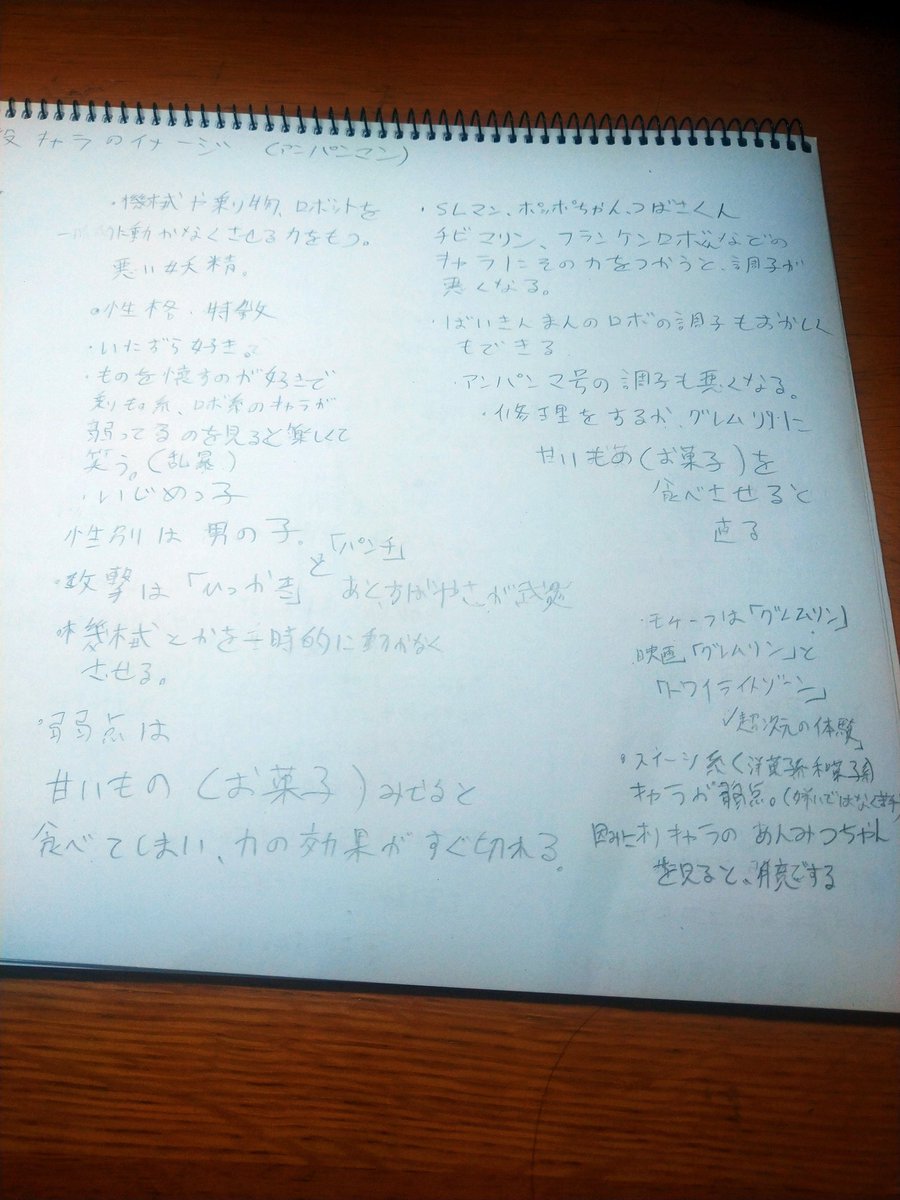 キャラのイメージ (アンパンマン)
・機械や乗り物、ロボットを
動かなくさせる力をもつ。
悪い妖精。
○性格・特徴
・いたずら好き。
・ものを壊すのが好きで
乗りもの系、ロボ系のキャラが
弱ってるのを見ると楽しくて
笑う。(乱暴)
・いじめっ子
性別は男の子。
・攻撃は「ひっかき」と「パンチ」
あと、すばやさが武器
・機械とかを一時的に動かなく
させる。
・弱点は
甘いもの(お菓子)みせると
食べてしまい、力の効果がすぐ切れる。
・SLマン、ポッポちゃん、つばさくん
チビマリン、フランケンロボくんなどの
キャラにその力をつかうと、調子が
悪くなる。
・ばいきんまんのロボの調子もおかしく
もできる
・アンパンマン号の調子も悪くなる。
・修理をするか、グレムリンに
甘いもの(お菓子)を
食べさせると
直る
・モチーフは「グレムリン」
映画「グレムリン」と
「トワイライトゾーン」
超次元の体験」
・スイーツ系(洋菓子系和菓子系)
キャラが弱点。
因みにオリキャラのあんみつちゃん
を見ると、